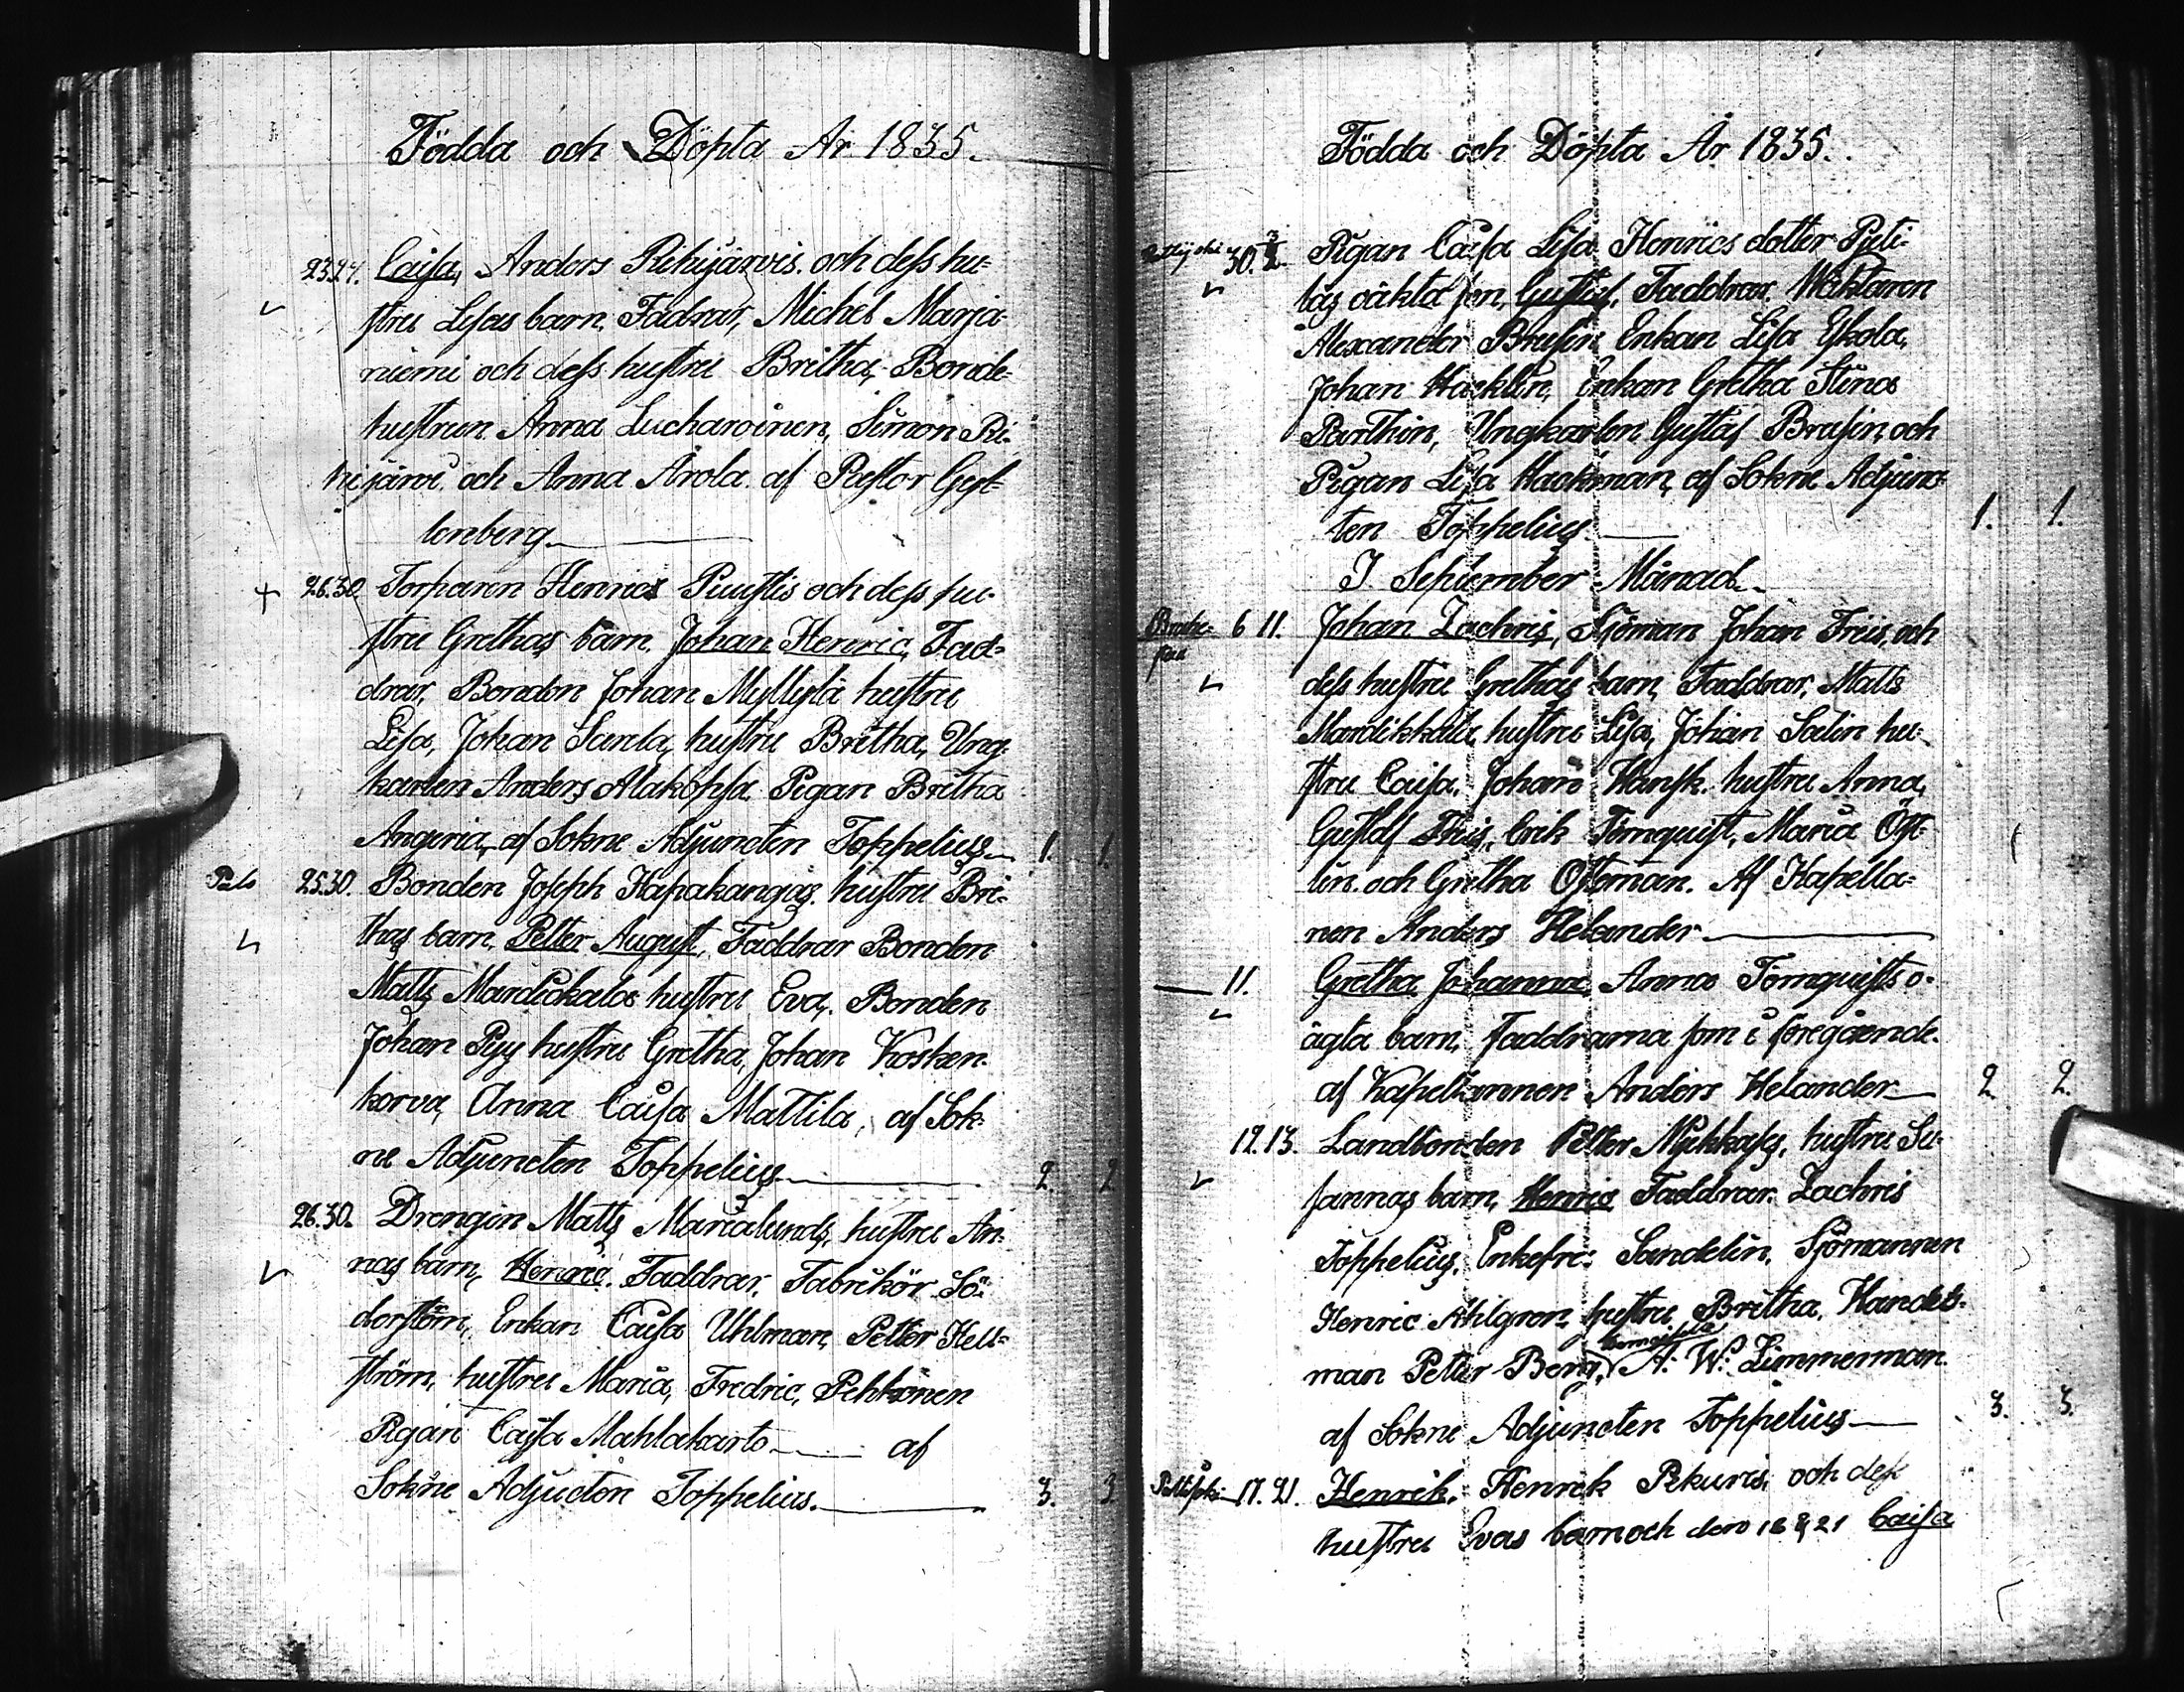 Födda och Döpta År 1835.
23.24. Caisa, Anders Rihijärvis. och dess hu-
stru Lisas barn. Fadrar, Michel Marja-
niemi och dess hustru Britha, Bonde-
hustrun Anna Lucharoinen, Simon Ri-
hijärvi och Anna Arola af Pastor Gyl-
lenberg
26.30. Torparen Henrics Puustis och dess hu-
stru Grethas barn. Johan Henric, Fad-
drar, Bonden Johan Myllylä hustru
Lisa, Johan Sarla, hustru Britha, Ung
karlen Anders Alaköpsa Pigan Britha
Angeria, af Sokne Adjuncten Toppelius 1. 1
Palo 25.30. Bonden Joseph Hapakangas. hustru Bri-
thas barn, Petter August, Faddrar Bonden
Matts Mardickalas hustru Eva, Bonden
Johan Pyy hustru Gretha, Johan Kosken-
korva, Anna Caisa Mattila, af Sok-
ne Adjuncten Toppelius 2. 2
26.30. Drengen Matts Marialunds, hustru An-
nas barn, Henric. Faddrar, Fabrikör Sö-
derström, Enkan Caisa Uhlman, Petter Hell-
ström, hustru Maria, Fredric, Pehkonen
Pigan Cajsa Mahlakarto af
Sokne Adjucten Toppelius. 3. 3
Födda och Döpta År 1835.
30. 3/2 Pigan Caisa Lisa Henrics dotter
oäkta son, Gustaf, Faddrar, Wäktaren
Alexander Brusin, Enkan Lisa Eskola,
Johan Hacklin, Enkan Gretha Stina
Parthin, Ungkarlen Gustaf Brusin, och
Pigan Lisa Hackman, af Sokne Adjunc-
ten Toppelius. 1. 1.
I September Månad.
Brahe-
stad 6 11. Johan Zachris, Sjöman Johan Friis, och
dess hustru Grethas barn, Faddrar, Matts
Mardikkala, hustru Lisa, Johan Salin hu-
stru Caisa, Johan Hansk. hustru Anna,
Gustaf Friis, Erik Törnquist, Maria Öst-
lin och Gretha Österman. Af Kapella-
nen Anders Helander
11. Gretha Johanna Anna Törnquists o-
ägta barn, faddrarna som i föregående.
af Kapellannen Anders Helander 2 2.
12.13. Landbonden Petter Nykkass, hustru Su-
sannas barn, Henric Faddrar, Zachris
Toppelius, Enkefru Sandelin, Sjömannen
Henric Ahlgren hustru Britha, Handels-
man Petter Berg, A: W: Zimmerman.
af Sokne Adjuncten Toppelius 3. 3.
17. 21. Henrik, Henrik Pekuris, och dess
hustru Evas barn och den 18 & 21 Caisa